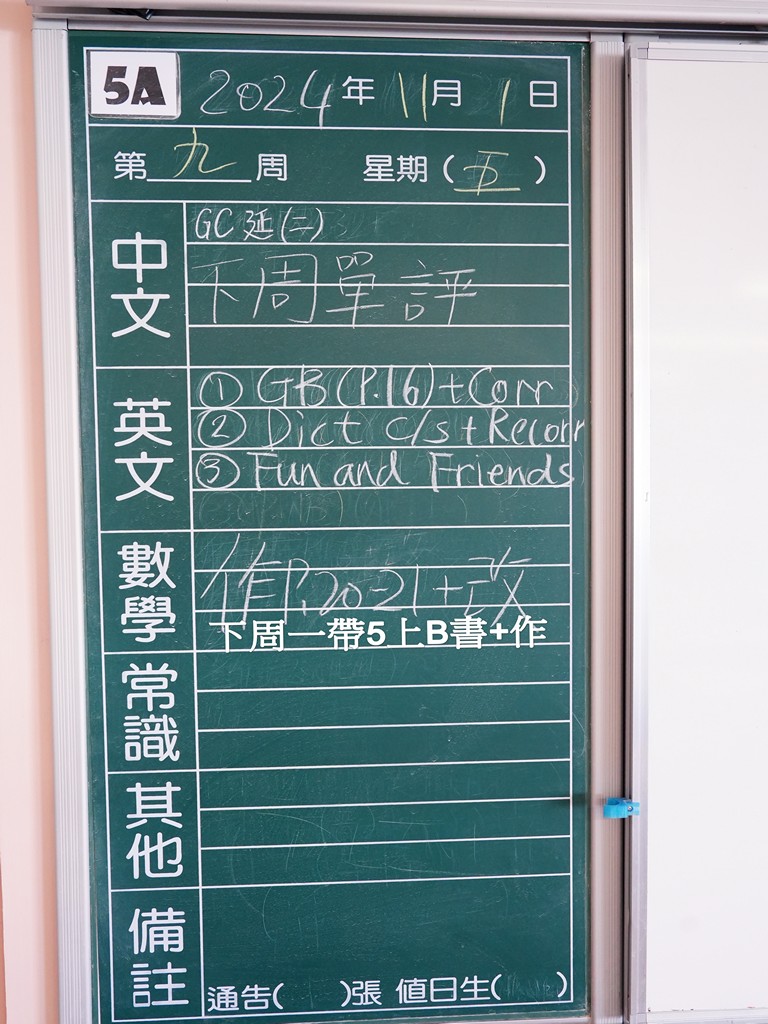 5A 2024年 11月 1日
第九周 星期(五)
中文
GC 延(二)
下周單評
英文
① GB (P.16) + Corr
② Dict c/s + Recorr
③ Fun and Friends
數學
作P.20-21+改
下周一帶5上B書+作
常識
其他
備註
通告( )張 值日生( )